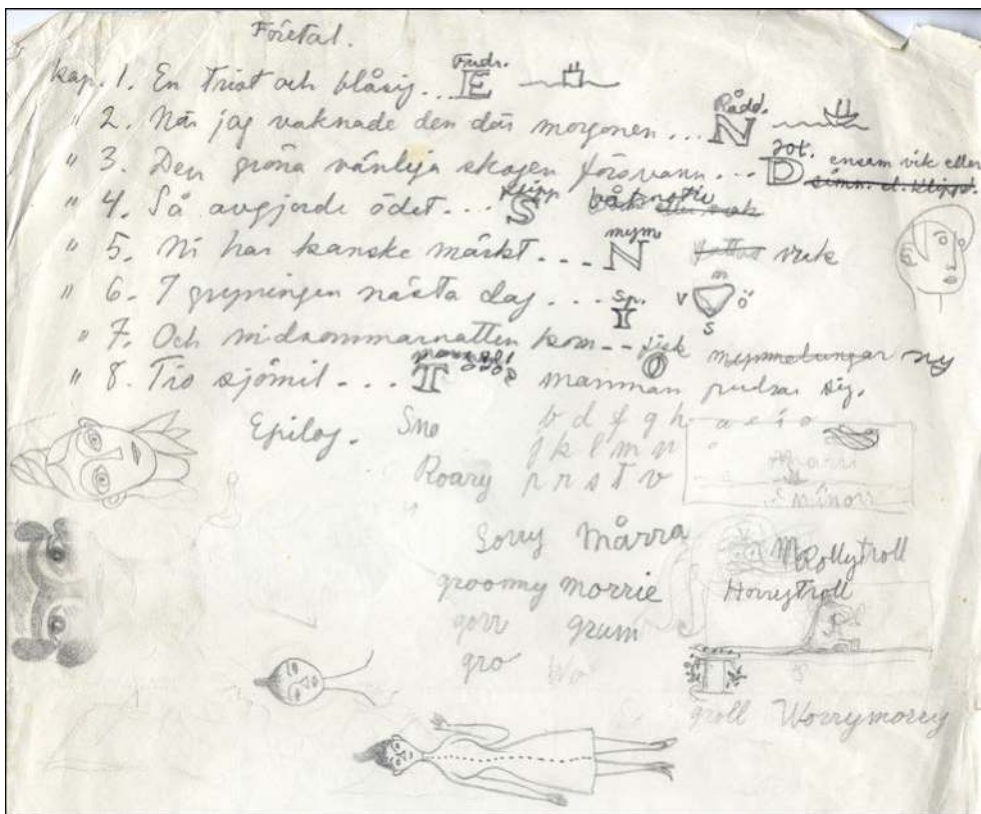 Företal.
Kap. 1. En trist och blåsig... Fredr. E
" 2. När jag vaknade den där morgonen... Rådd. N
" 3. Den gröna vänliga skogen försvann... Jot. D ensam vik eller
" 4. Så avgjorde ödet... S
" 5. Ni har kanske märkt... mym N vrak
" 6. I gryningen nästa dag... Sp. I V m ö s
" 7. Och midsommarnatten kom... O mymmelungar ny
" 8. Tio sjömil... T mamman pudrar sig.
Epilog. Sno b d f g h a e i o
j k l m n
Roary p r s t v
Sorry Mårra
groomy morrie
gorr grum
gro Wo
Mollytroll
Horreytroll
groll Worrymorrey